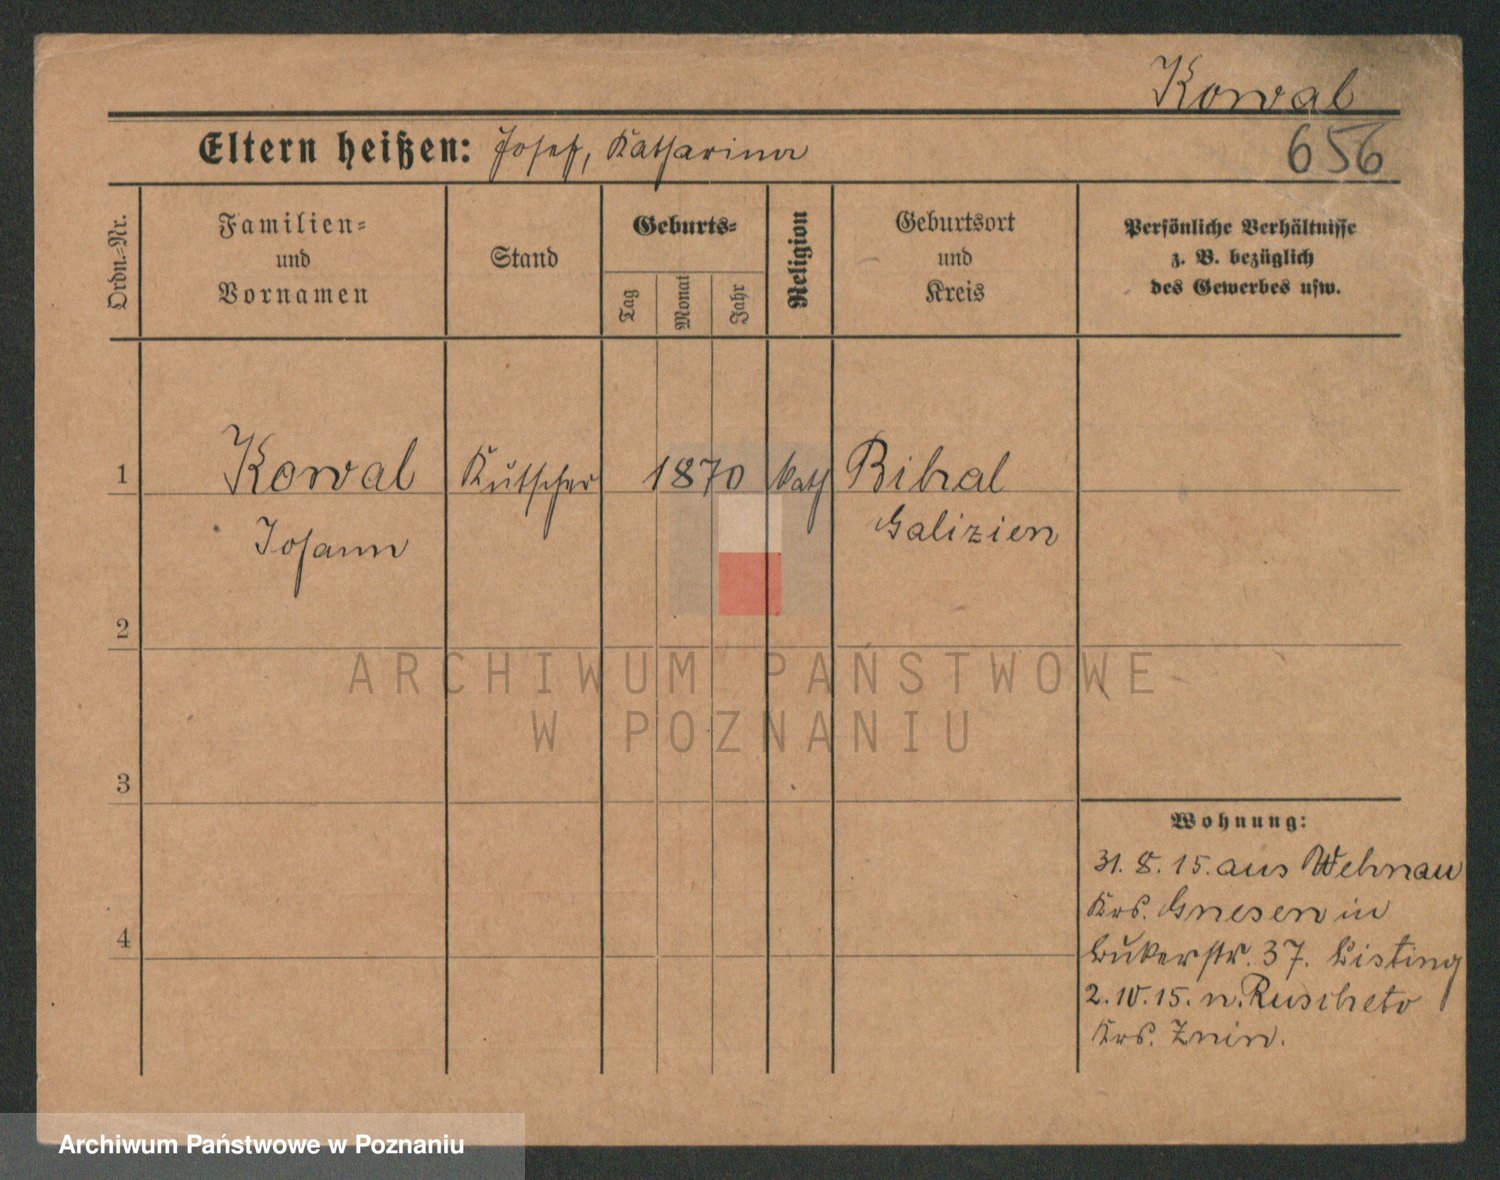 Kowal
656
Eltern heißen: Josef, Katharina
Ordn.-Nr.
Familien-
und
Vornamen
Stand
Geburts-
Tag
Monat
Jahr
Religion
Geburtsort
und
Kreis
Persönliche Verhältnisse
z. B. bezüglich
des Gewerbes usw.
1 Kowal Kutscher 1870 kath Bihal
Johann Galizien
2
3
4
Wohnung:
31. 8. 15. aus Welnau
Krs. Gnesen in
Bukerstr. 37. Listing
2. 10. 15. n. Ruscheto
Krs. Znin.
ARCHIWUM PAŃSTWOWE
W POZNANIU
Archiwum Państwowe w Poznaniu